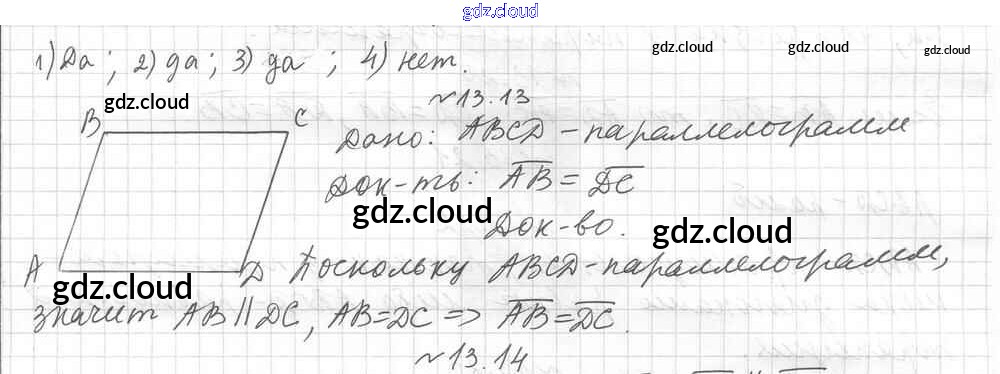 gdz.cloud
gdz.cloud gdz.cloud gdz.cloud
1) Да; 2) да; 3) да; 4) нет.
gdz.cloud
№13.13
B C
Дано: ABCD - параллелограмм
Док-ть: AB = DC
gdz.cloud
Док-во.
gdz.cloud
A D Поскольку ABCD - параллелограмм,
gdz.cloud
значит AB || DC, AB = DC => AB = DC.
№13.14